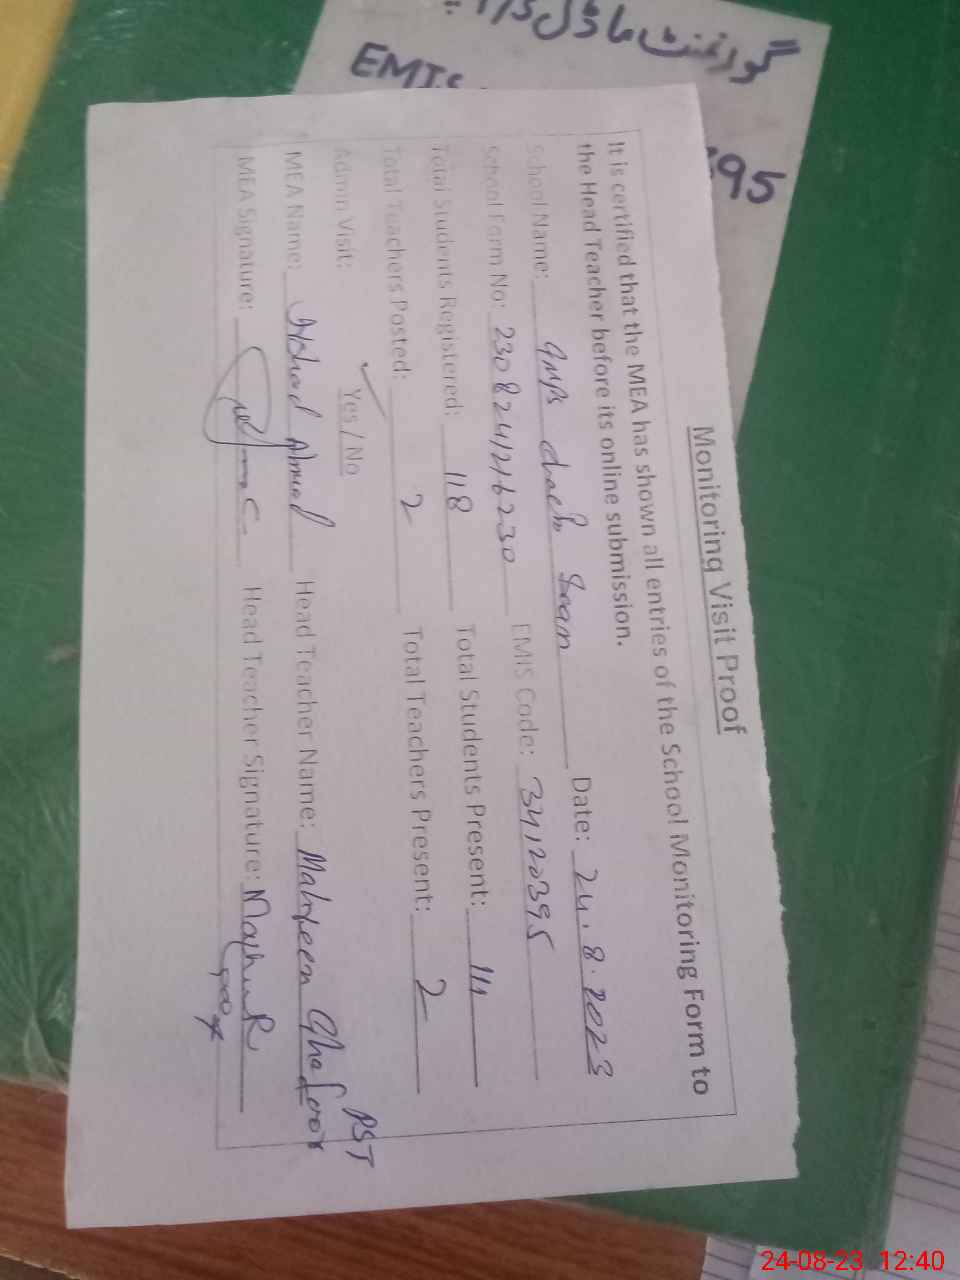 گورنمنٹ ماڈل
EMIS
395
Monitoring Visit Proof
It is certified that the MEA has shown all entries of the School Monitoring Form to
the Head Teacher before its online submission.
School Name: GMPS Date: 24.8.2023
School Form No: 2308241216230 EMIS Code: 34120395
Total Students Registered: 118 Total Students Present: 111
Total Teachers Posted: 2 Total Teachers Present: 2
Admin Visit: ✓ Yes / No
PST
MEA Name: Irshad Ahmad Head Teacher Name: Mahreen Ghafoor
MEA Signature: Head Teacher Signature:
24-08-23 12:40